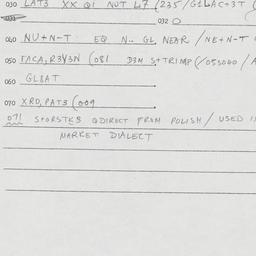 030 LAT3 XX QI NUT 47 (235/G1LAC+3T
032 O
040 NU+N-T EQ N.. GL NEAR /NE+N-T
050 TACA, R3Y3N (081 D3M S+TRIMP (/053040 /A
060 GL8AT
070 XRD, PAT3 (009
071 S+ORSTKB QDIRECT FROM POLISH / USED I
MARKET DIALECT